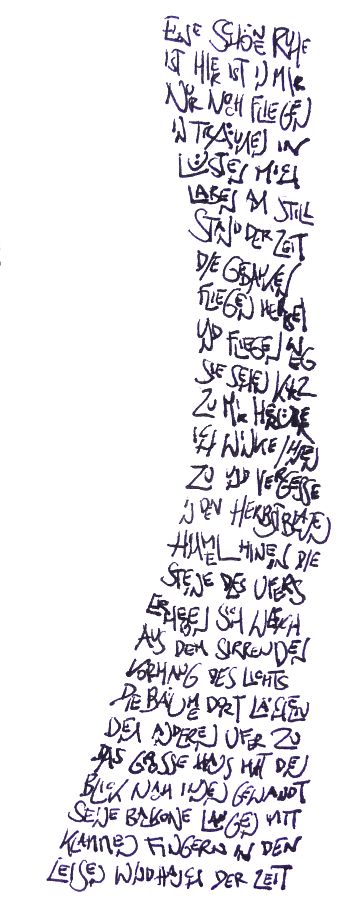 EINE SCHÖNE RUHE
IST HIER IST IN MIR
NUR NOCH FLIEGEN
IN TRÄUMEN IN
LÜSTEN MICH
LABEN AM STILL
STAND DER ZEIT
DIE GEDANKEN
FLIEGEN HERBEI
UND FLIEGEN WEG
SIE SEHEN KURZ
ZU MIR HERÜBER
ICH WINKE IHNEN
ZU UND VERGESSE
IN DEN HERBSTBLAUEN
HIMMEL HINEIN DIE
STEINE DES UFERS
ERHEBEN SICH WEICH
AUS DEM SIRRENDEN
VORHANG DES LICHTS
DIE BÄUME DORT LÄCHELN
DEM ANDEREN UFER ZU
DAS GROSSE HAUS HAT DEN
BLICK NACH INNEN GEWANDT
SEINE BALKONE LANGEN MIT
KLAMMEN FINGERN IN DEN
LEISEN WINDHAUCH DER ZEIT